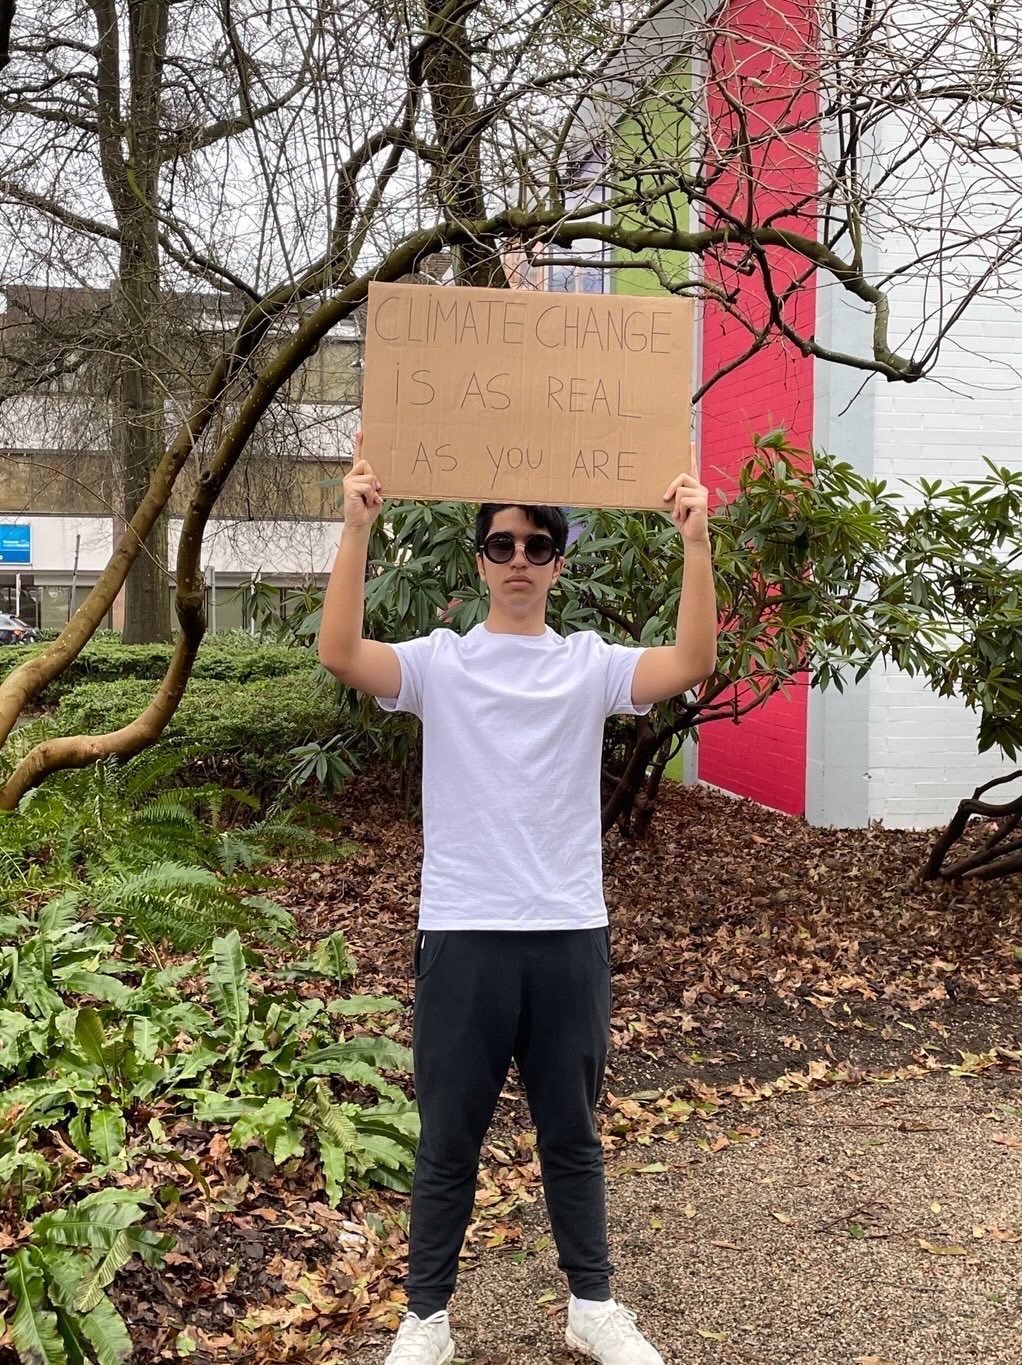 CLiMATE CHANGE
iS AS REAL
AS YOU ARE